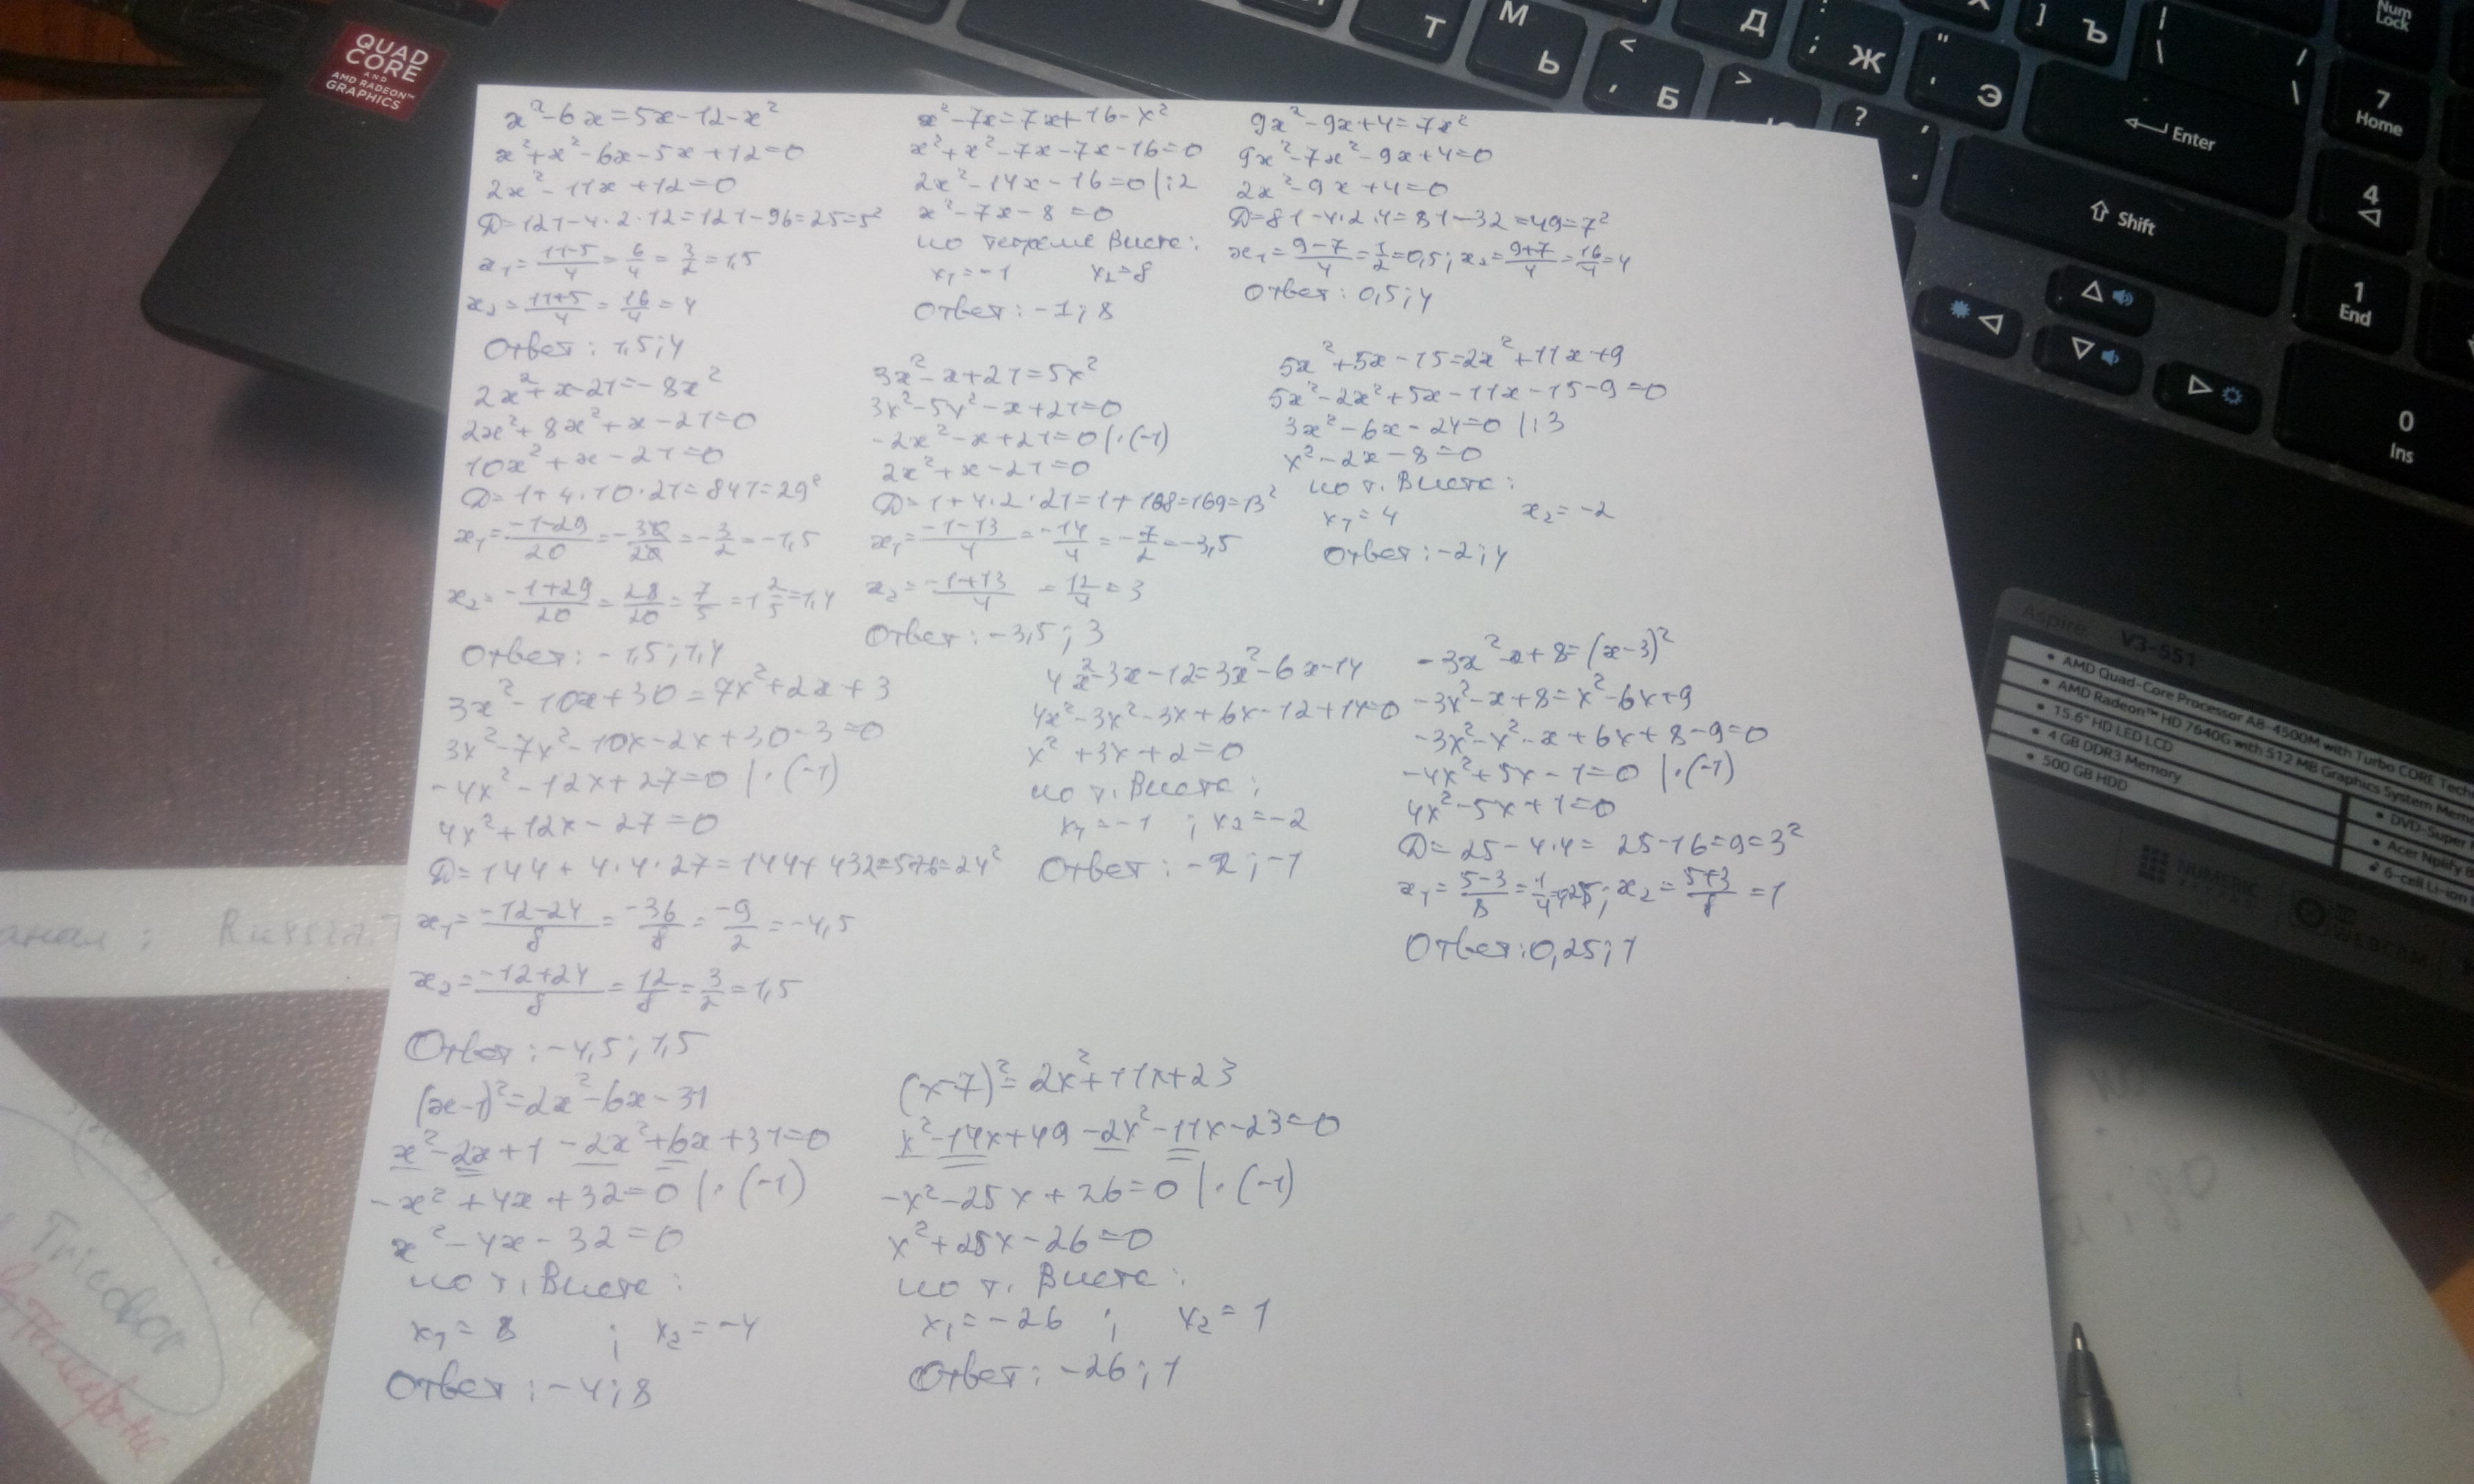 x²-6x=5x-12-x²
x²+x²-6x-5x+12=0
2x²-11x+12=0
D=121-4·2·12=121-96=25=5²
x₁=(11-5)/4=6/4=3/2=1,5
x₂=(11+5)/4=16/4=4
Ответ: 1,5;4
x²-7x=7x+16-x²
x²+x²-7x-7x-16=0
2x²-14x-16=0|:2
x²-7x-8=0
по теореме Виета:
x₁=-1 x₂=8
Ответ: -1;8
9x²-9x+4=7x²
9x²-7x²-9x+4=0
2x²-9x+4=0
D=81-4·2·4=81-32=49=7²
x₁=(9-7)/4=1/2=0,5; x₂=(9+7)/4=16/4=4
Ответ: 0,5;4
2x²+x-21=-8x²
2x²+8x²+x-21=0
10x²+x-21=0
D=1+4·10·21=841=29²
x₁=(-1-29)/20=-30/20=-3/2=-1,5
x₂=(-1+29)/20=28/20=7/5=1 2/5=1,4
Ответ: -1,5;1,4
3x²-x+21=5x²
3x²-5x²-x+21=0
-2x²-x+21=0|·(-1)
2x²+x-21=0
D=1+4·2·21=1+168=169=13²
x₁=(-1-13)/4=-14/4=-7/2=-3,5
x₂=(-1+13)/4=12/4=3
Ответ: -3,5;3
5x²+5x-15=2x²+11x+9
5x²-2x²+5x-11x-15-9=0
3x²-6x-24=0|:3
x²-2x-8=0
по т. Виета:
x₁=4 x₂=-2
Ответ: -2;4
3x²-10x+30=7x²+2x+3
3x²-7x²-10x-2x+30-3=0
-4x²-12x+27=0|·(-1)
4x²+12x-27=0
D=144+4·4·27=144+432=576=24²
x₁=(-12-24)/8=-36/8=-9/2=-4,5
x₂=(-12+24)/8=12/8=3/2=1,5
Ответ: -4,5;1,5
4x²-3x-12=3x²-6x-14
4x²-3x²-3x+6x-12+14=0
x²+3x+2=0
по т. Виета:
x₁=-1; x₂=-2
Ответ: -2;-1
-3x²-x+8=(x-3)²
-3x²-x+8=x²-6x+9
-3x²-x²-x+6x+8-9=0
-4x²+5x-1=0|·(-1)
4x²-5x+1=0
D=25-4·4=25-16=9=3²
x₁=(5-3)/8=1/4=0,25; x₂=(5+3)/8=1
Ответ: 0,25;1
(x-1)²=2x²-6x-31
x²-2x+1-2x²+6x+31=0
-x²+4x+32=0|·(-1)
x²-4x-32=0
по т. Виета:
x₁=8; x₂=-4
Ответ: -4;8
(x-7)²=2x²+11x+23
x²-14x+49-2x²-11x-23=0
-x²-25x+26=0|·(-1)
x²+25x-26=0
по т. Виета:
x₁=-26; x₂=1
Ответ: -26;1
QUAD
CORE
AND
AMD RADEON™
GRAPHICS
Т
М
Ь
<
, Б
>
Д
:
; Ж
"
' Э
?
]
Ъ
| /
\ \
Enter
Shift
Num
Lock
7
Home
4
1
End
0
Ins
Aspire V3-551
• AMD Quad-Core Processor A8-4500M with Turbo CORE
• AMD Radeon™ HD 7640G with 512 MB Graphics System
• 15.6" HD LED LCD
• 4 GB DDR3 Memory
• 500 GB HDD
• DVD-Super
• Acer Nplify
• 6-cell Li-ion
NUMERIC
HD
WEBCAM
анал: Russia
Tricolor